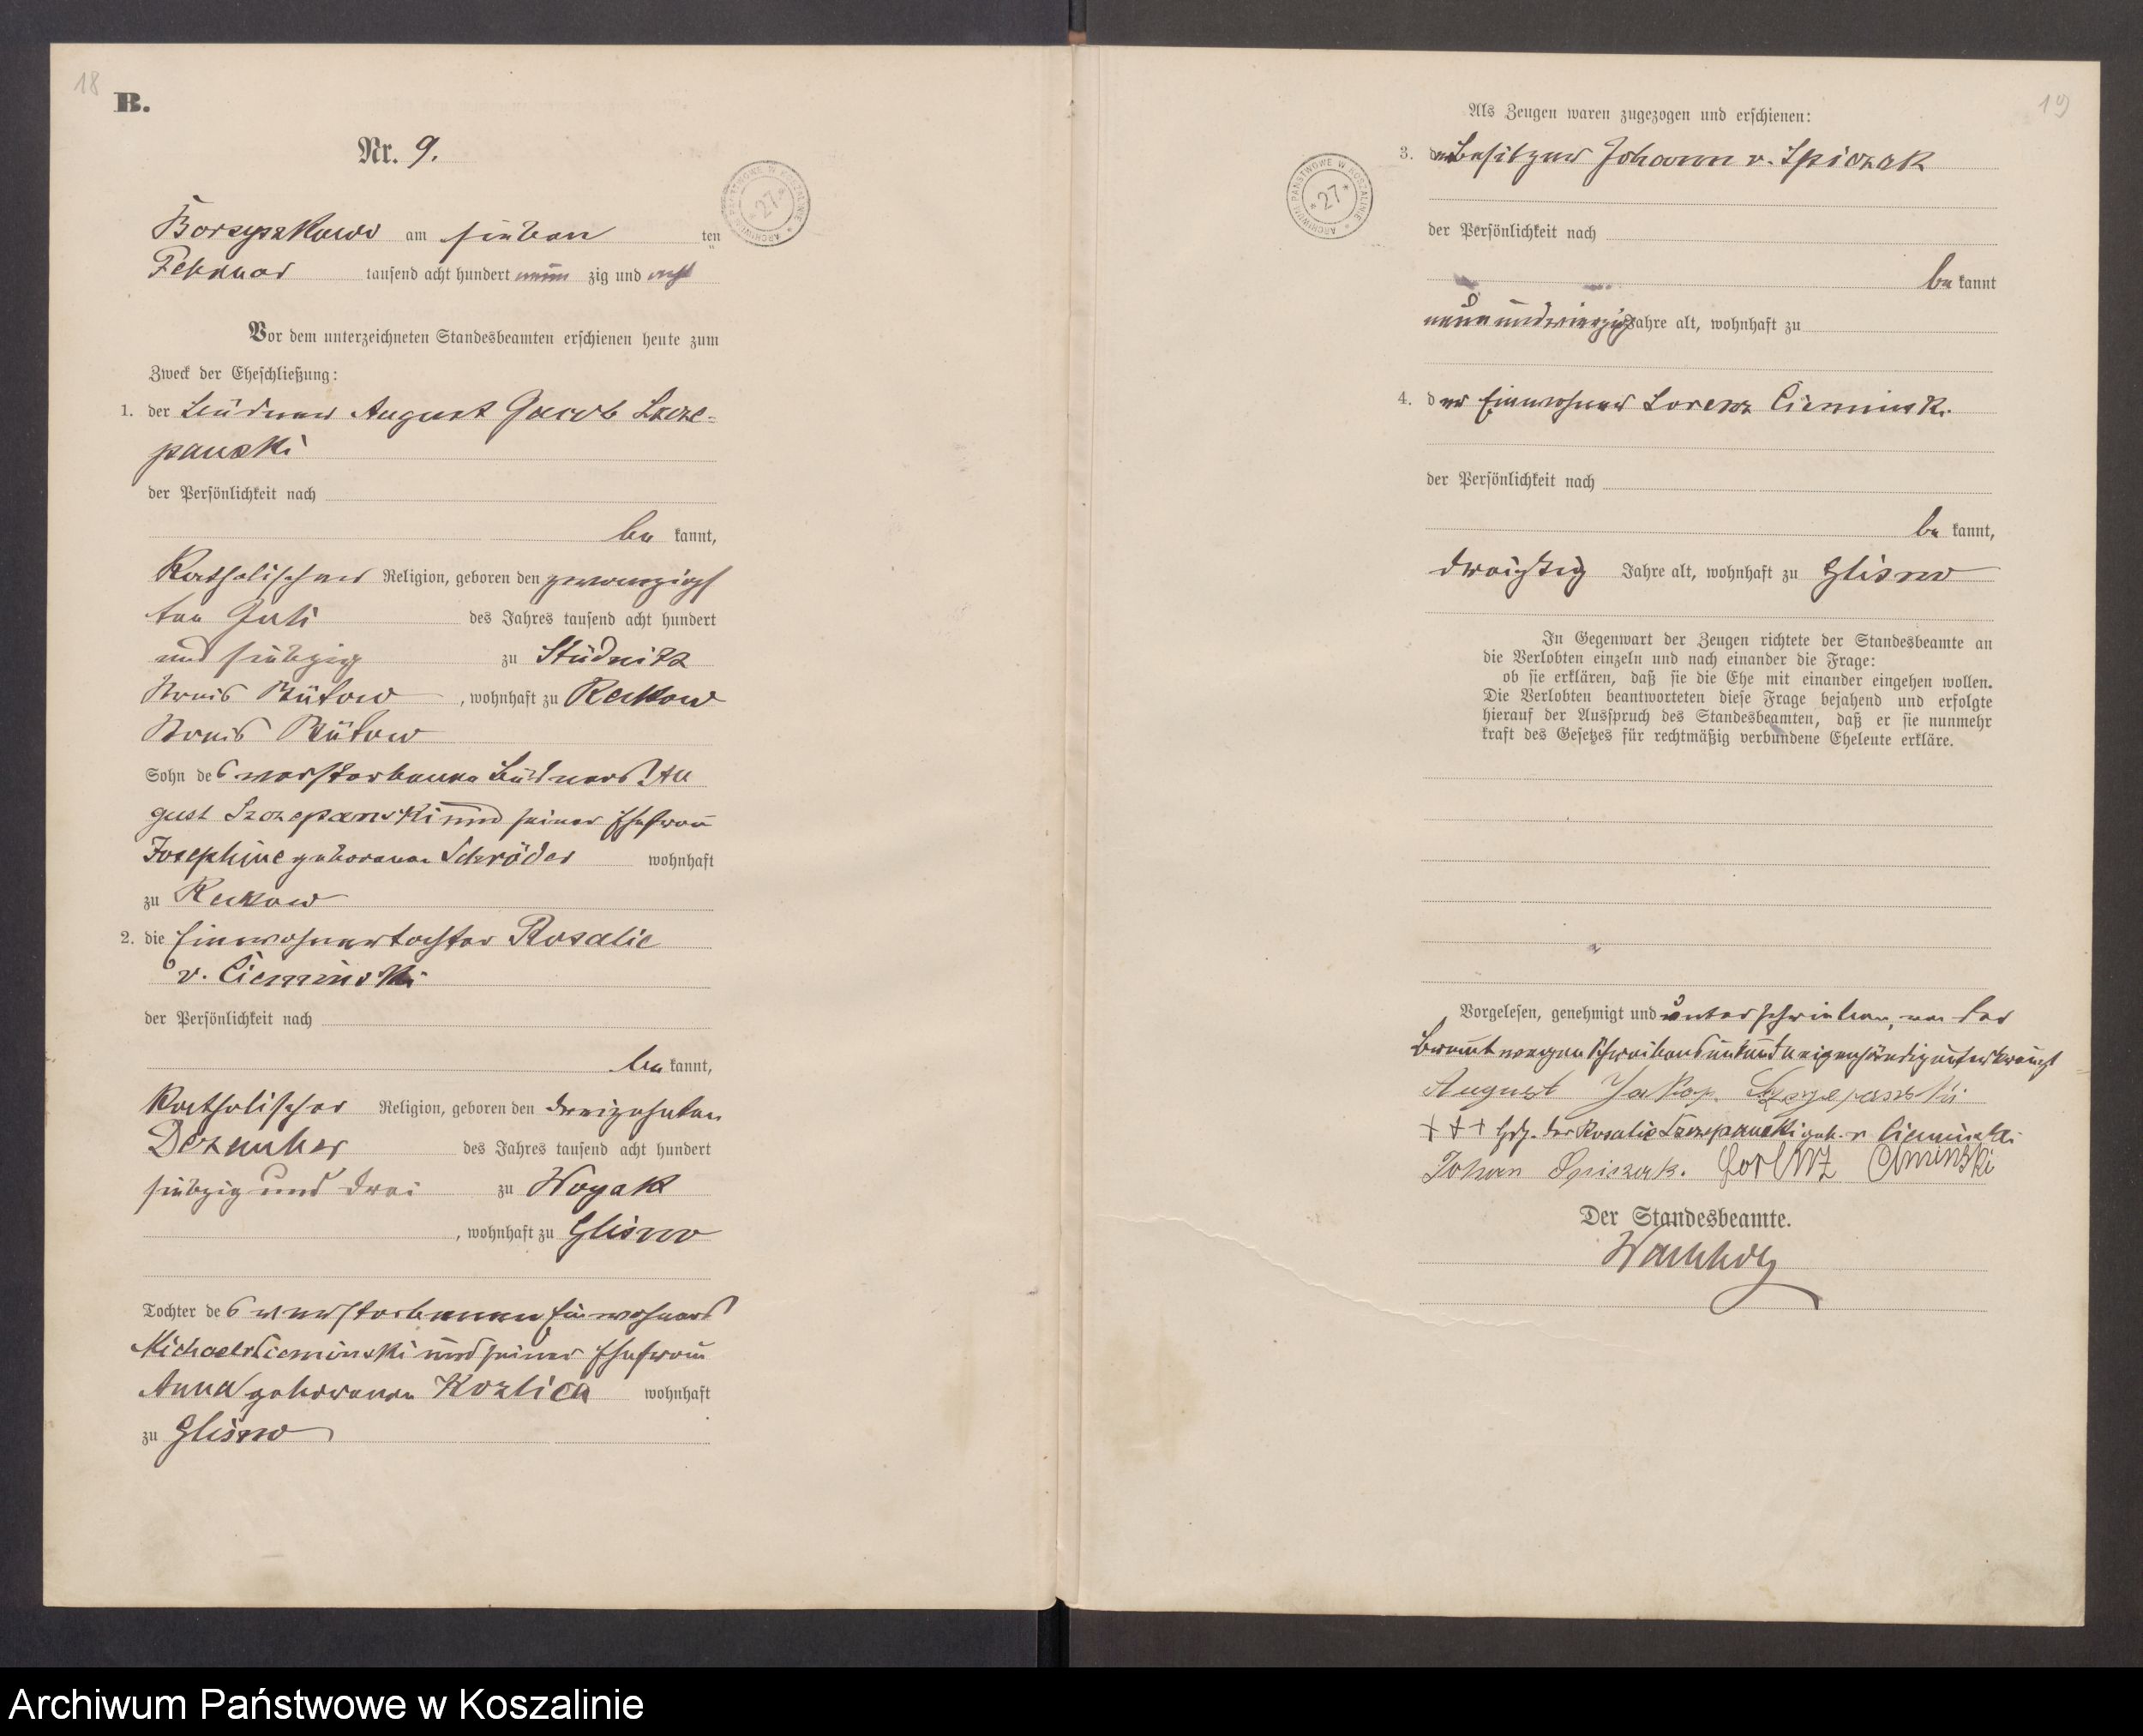 18
B.
Nr. 9.
ARCHIWUM PAŃSTWOWE W KOSZALINIE * 27 *
Borzyszkowo am sieben ten
Februar tausend acht hundert neun zig und acht
Vor dem unterzeichneten Standesbeamten erschienen heute zum
Zweck der Eheschließung:
1. der Büdner August Jacob Szcze-
panski
der Persönlichkeit nach
be kannt,
Katholischer Religion, geboren den zwanzigs
ten Juli des Jahres tausend acht hundert
und siebzig zu Stüdnitz
Kreis Bütow, wohnhaft zu Reckow
Kreis Bütow
Sohn des verstorbenen Büdners Au
gust Szczepanski und seiner Ehefrau
Josephine geborenen Schröder wohnhaft
zu Reckow
2. die Einwohnertochter Rosalie
v. Cieminski
der Persönlichkeit nach
be kannt,
Katholischer Religion, geboren den dreizehnten
Dezember des Jahres tausend acht hundert
siebzig und drei zu Woyak
, wohnhaft zu Glisno
Tochter des verstorbenen Einwohners
Michael v Cieminski und seiner Ehefrau
Anna geborenen Kozlica wohnhaft
zu Glisno
19
Als Zeugen waren zugezogen und erschienen:
ARCHIWUM PAŃSTWOWE W KOSZALINIE * 27 *
3. der Besitzer Johann v. Spiczak
der Persönlichkeit nach
be kannt
neun und vierzig Jahre alt, wohnhaft zu
4. der Einwohner Lorenz Cieminski
der Persönlichkeit nach
be kannt,
dreißig Jahre alt, wohnhaft zu Glisno
In Gegenwart der Zeugen richtete der Standesbeamte an
die Verlobten einzeln und nach einander die Frage:
ob sie erklären, daß sie die Ehe mit einander eingehen wollen.
Die Verlobten beantworteten diese Frage bejahend und erfolgte
hierauf der Ausspruch des Standesbeamten, daß er sie nunmehr
kraft des Gesetzes für rechtmäßig verbundene Eheleute erkläre.
Vorgelesen, genehmigt und unterschrieben, von der
Braut wegen Schreibensunkunde eigenhändig unterkreuzt
August Jakop Szczepanski
+ + + Hdz. der Rosalie Szczepanski geb. v Cieminski
Johan Spiczak. Lorenz Cimenski
Der Standesbeamte.
Wachholz
Archiwum Państwowe w Koszalinie